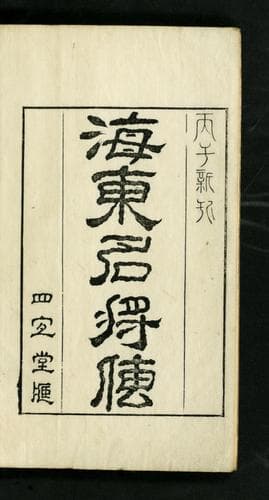 丙子新刊
海東名將傳
四宜堂藏